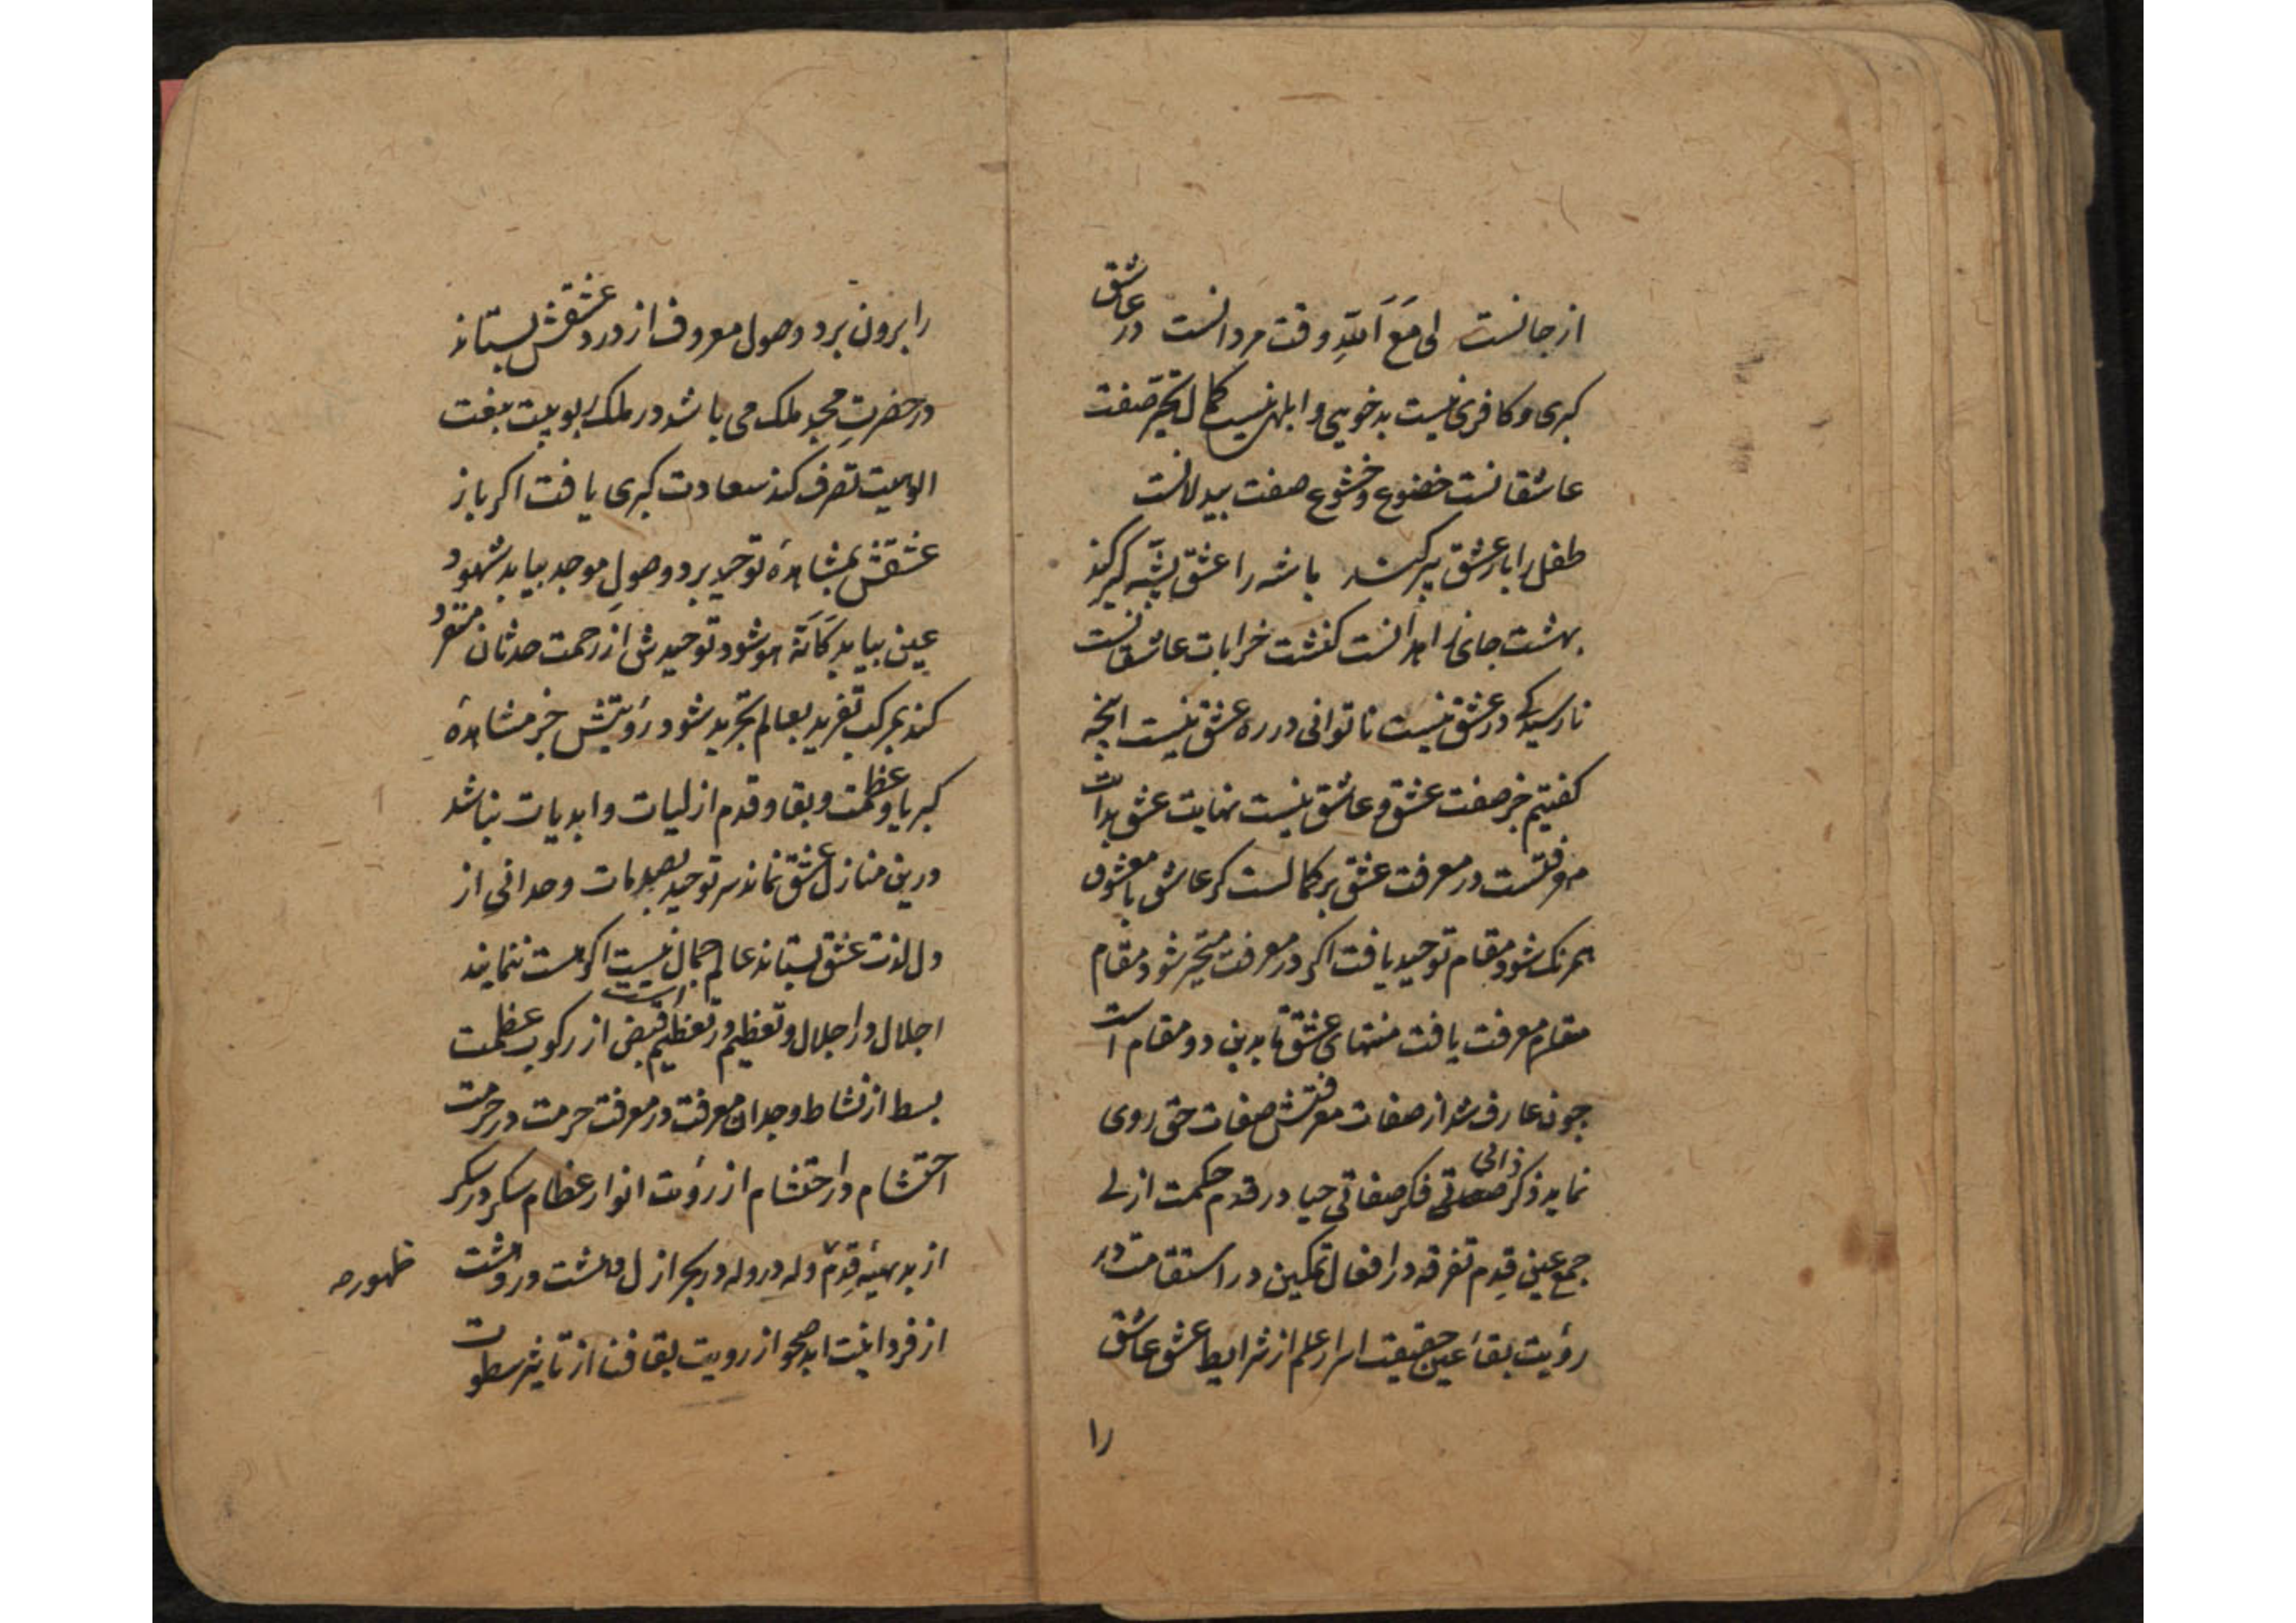 از جانست لی مَعَ اَللّٰهِ وقت مردانست در عاشق
کبری و کافری نیست بدخویی و ابلهی نیست کمال تحیّر صفت
عاشقانست خضوع و خشوع صفت بیدلانست
طفل را بار عشق پیر کند باشه را عشق پشّه گیر کند
بهشت جای زاهدانست کنشت خرابات عاشقانست
نارسیدگی در عشق نیست ناتوانی در ره عشق نیست انچه
کفتیم جز صفت عشق و عاشق نیست نهایت عشق بدات
معرفتست در معرفت عشق بر کمالست کر عاشق با معشوق
همرنک شود مقام توحید یافت اکر در معرفت متحیّر شود مقام
مقام معرفت یافت منتهای عشق تا بدین دو مقام است
چون عارف شد از صفات معرفتش صفات حق روی
نماید ذکر صفاتی ذاتی فکر صفاتی حیا در قدم حکمت ازلے
جمع عین قِدم تفرقه در افعال تمکین در استقامت در
رؤیت بقاء عین حقیقت اسرار علم از شرایط عشق عاشق
را
را برون برد وصول معروف از درد عشقش بستاند
در حضرتِ مجد ملک می باشد در ملک ربوبیت بنعت
الوهیت تصرف کند سعادت کبری یافت اکر باز
عشقش بمشاهدهٔ توحید برد وصولِ موحد بیابد شهود
عین بیابد کَاَنَّهٗ هو شود توحیدش از زحمت حدثان منفرد
کند بمرکب تفرید بعالم تجرید شود رؤیتش جز مشاهدهٔ
کبریا و عظمت و بقا و قدم ازلیات و ابدیات نباشد
درین منازل عشق نماند سر توحید بصدمات وحدانی از
دل لذت عشق بستاند عالم جمال نیست اکر هست ننمایند
اجلال در اجلال و تعظیم در تعظیم است قبض از رکوب عظمت
بسط از نشاط وجدان معرفت در معرفت حرمت در حرمت
احتشام در احتشام از رؤیت انوار عظام سکر در سکر
از بدیهیهٔ قِدم وله در وله در بحر ازل دهشت در دهشت
ظهور صح
از فردانیت ابد صحو از رویت بقا فنا از تاثیر سطوت